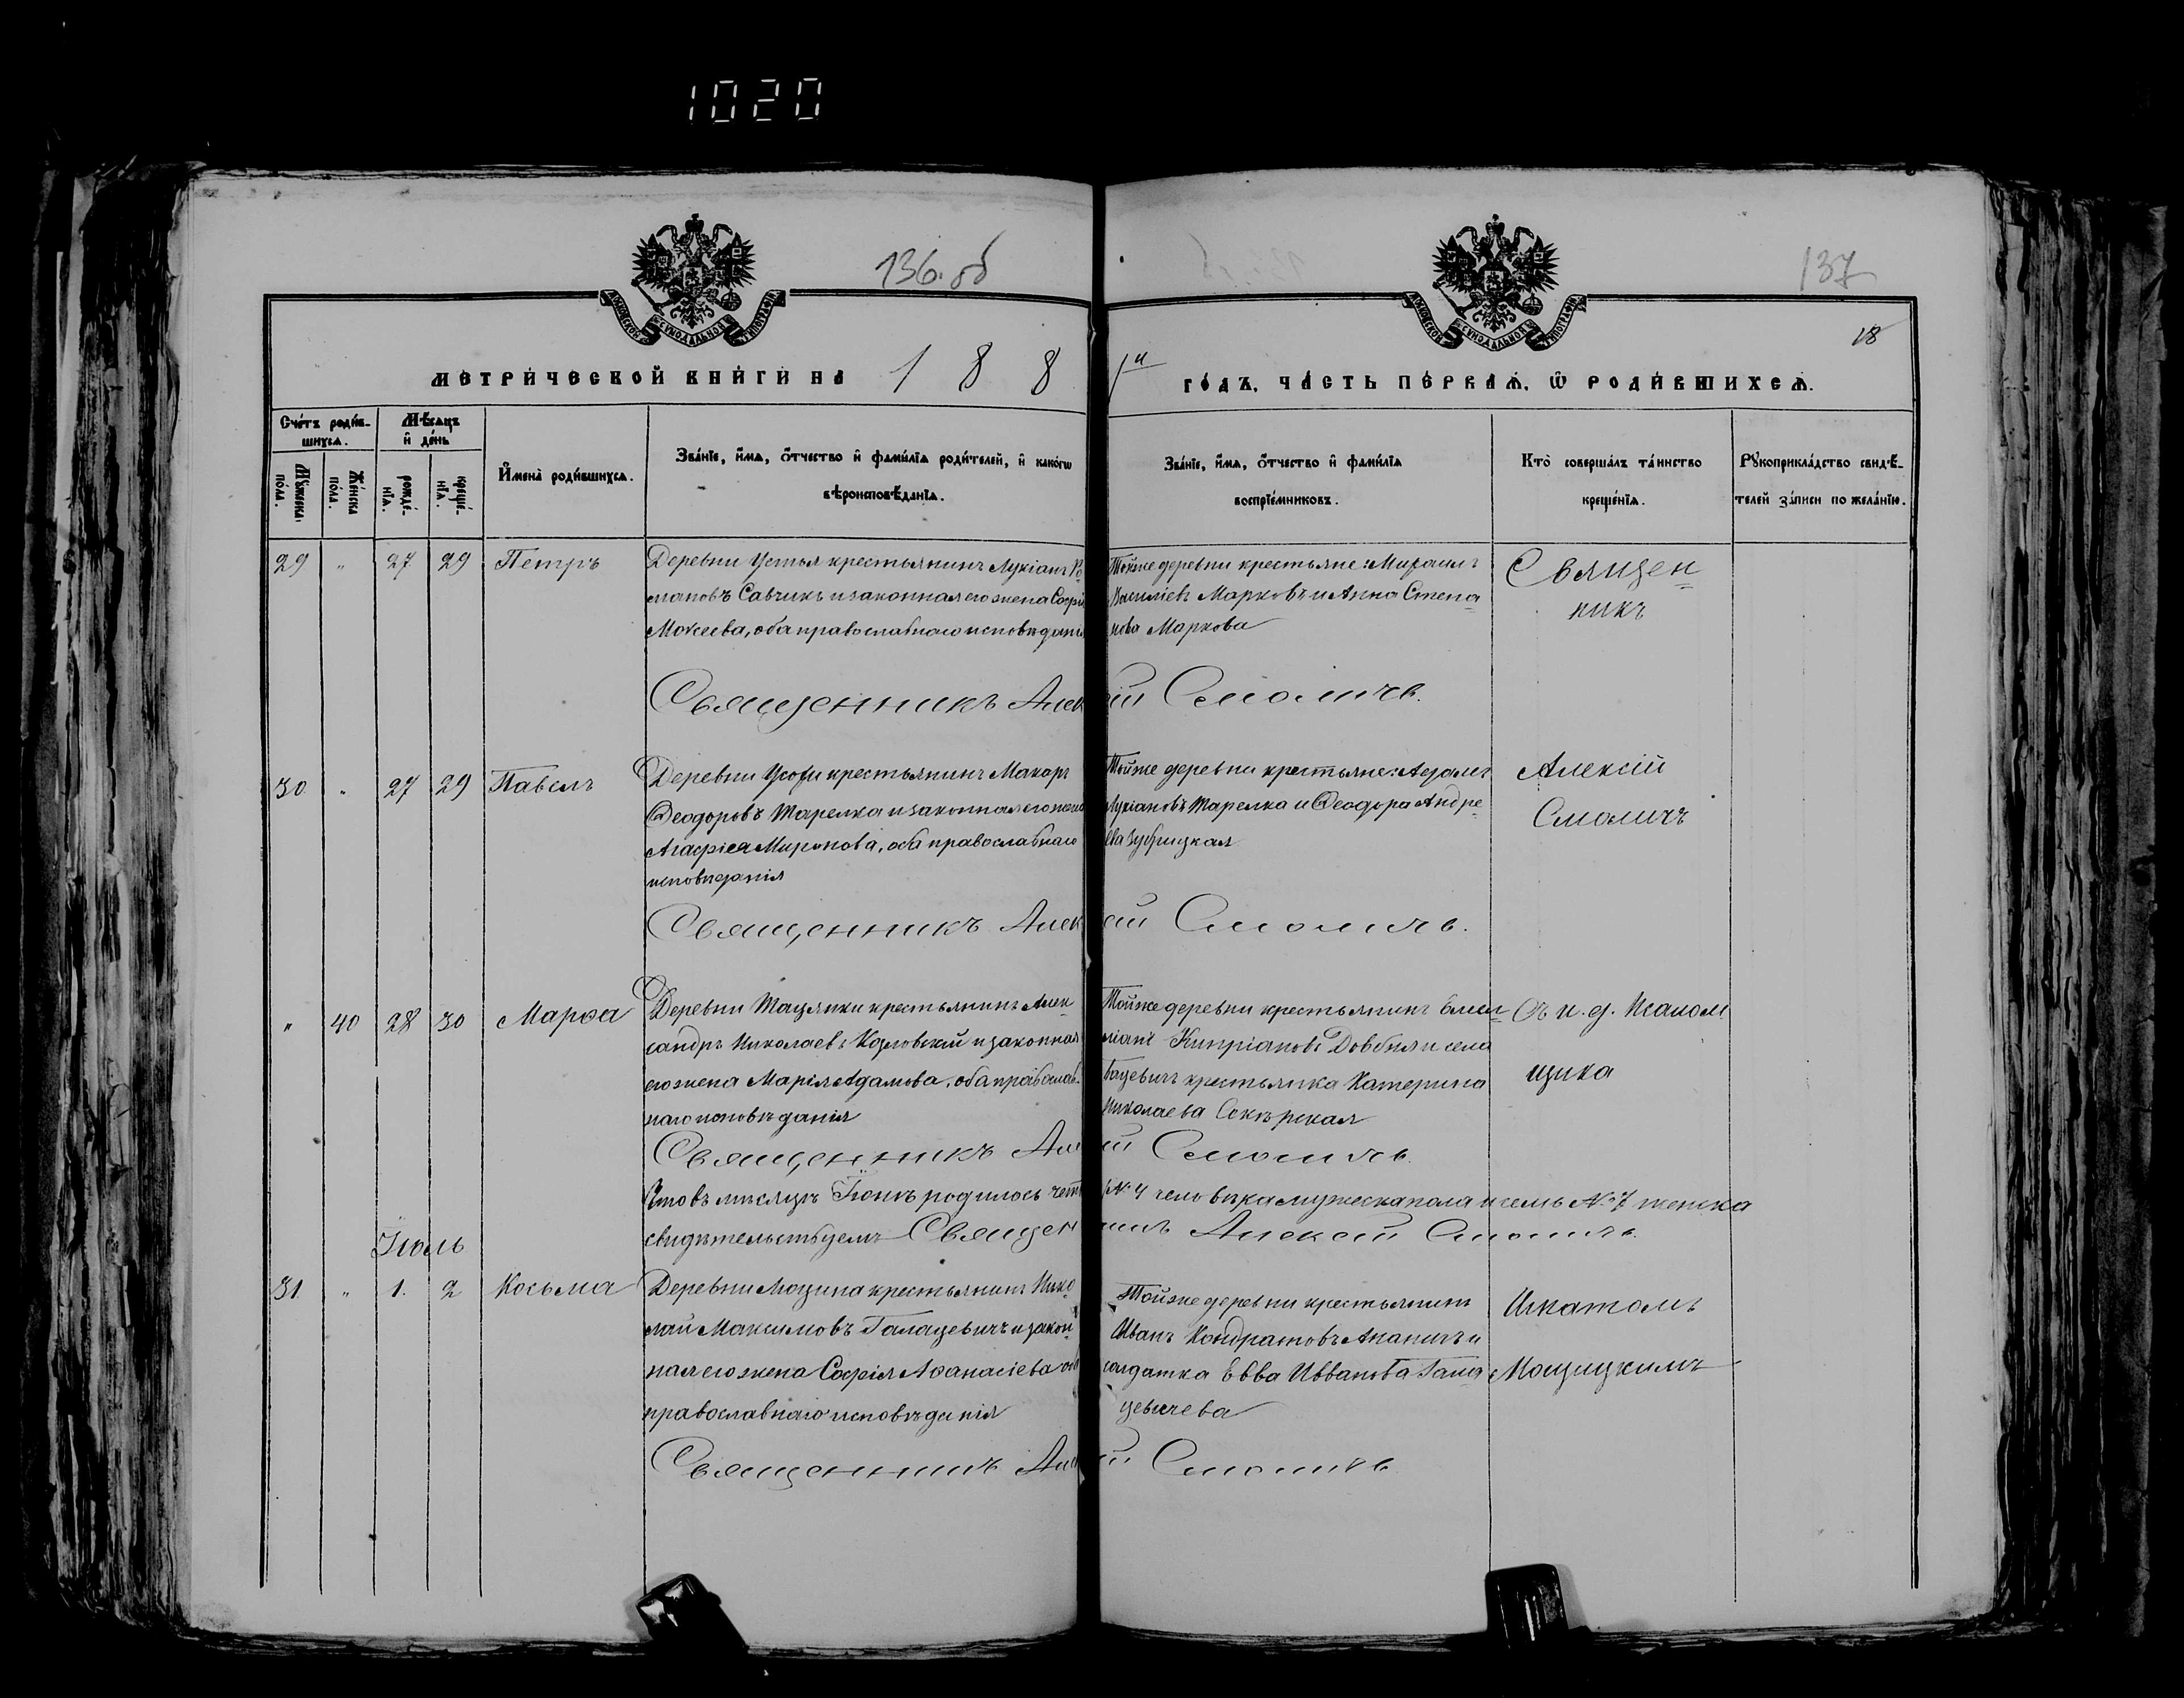 1020
136. об
137
18
МЕТРИЧЕСКОЙ КНИГИ НА 188 1й ГОДЪ, ЧАСТЬ ПЕРВАЯ, Ѿ РОДИВШИХСЯ.
Счетъ родившихся.
Мѣсяцъ и день
Имена родившихся.
Званіе, имя, отчество и фамилія родителей, и какогѡ
вѣроисповѣданія.
Званіе, имя, отчество и фамилія
воспріемниковъ.
Кто совершалъ таинство
крещенія.
Рукоприкладство свидѣ-
телей записи по желанію.
Мужеска пола.
Женска пола.
рожденія.
крещенія.
29 " 27 29 Петръ
Деревни Устья крестьянинъ Лукіанъ Ро-
мановъ Савчикъ и законная его жена Софія
Моѵсеева, оба православнаго исповѣданія
Тойже деревни крестьяне: Михаилъ
Василіевъ Марковъ и Анна Степа-
нова Маркова
Священ-
никъ
Священникъ Алексій Смоличъ.
30 " 27 29 Павелъ
Деревни крестьянинъ Макаръ
Ѳеодоровъ Тарелка и законная его жена
Агафія Миронова, оба православнаго
исповѣданія
Тойже деревни крестьяне: Адамъ
Лукіановъ Тарелка и Ѳеодора Андре-
ева Зубрицкая
Алексій
Смоличъ
Священникъ Алексій Смоличъ.
" 40 28 30 Марѳа
Деревни Тацянки крестьянинъ Алек-
сандръ Николаевъ Козловскій и законная
его жена Марія Адамова, оба православ-
наго исповѣданія
Тойже деревни крестьянинъ Емил-
ліанъ Кипріановъ Довбня и села
Бацевичъ крестьянка Катерина
Николаева Сокѣрская
Съ и. д. Псалом-
щика
Священникъ Алексій Смоличъ.
Что въ мѣсяцѣ Іюнѣ родилось чет. № 4 человѣка мужеска пола и семь № 7 женска
свидѣтельствуемъ Священникъ Алексій Смоличъ.
Іюль
31. " 1. 2 Косьма
Деревни Мощина крестьянинъ Нико-
лай Максимовъ Галацевичъ и закон-
ная его жена Софія Аѳанасіева оба
православнаго исповѣданія
Тойже деревни крестьянинъ
Иванъ Кондратовъ Ананичъ и
солдатка Евва Ивванова Гала-
цевичева
Игнатомъ
Мощицкимъ
Священникъ Алексій Смоличъ